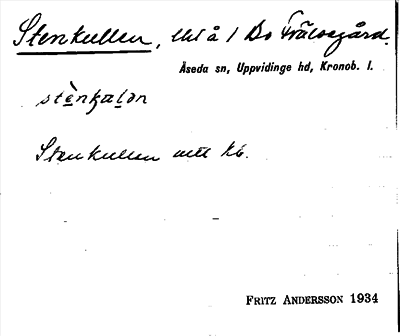 Stenkullen, lht å 1 Bo Frälsegård.
Åseda sn, Uppvidinge hd, Kronob. l.
stènkalən
Stenkullen enl kb.
FRITZ ANDERSSON 1934